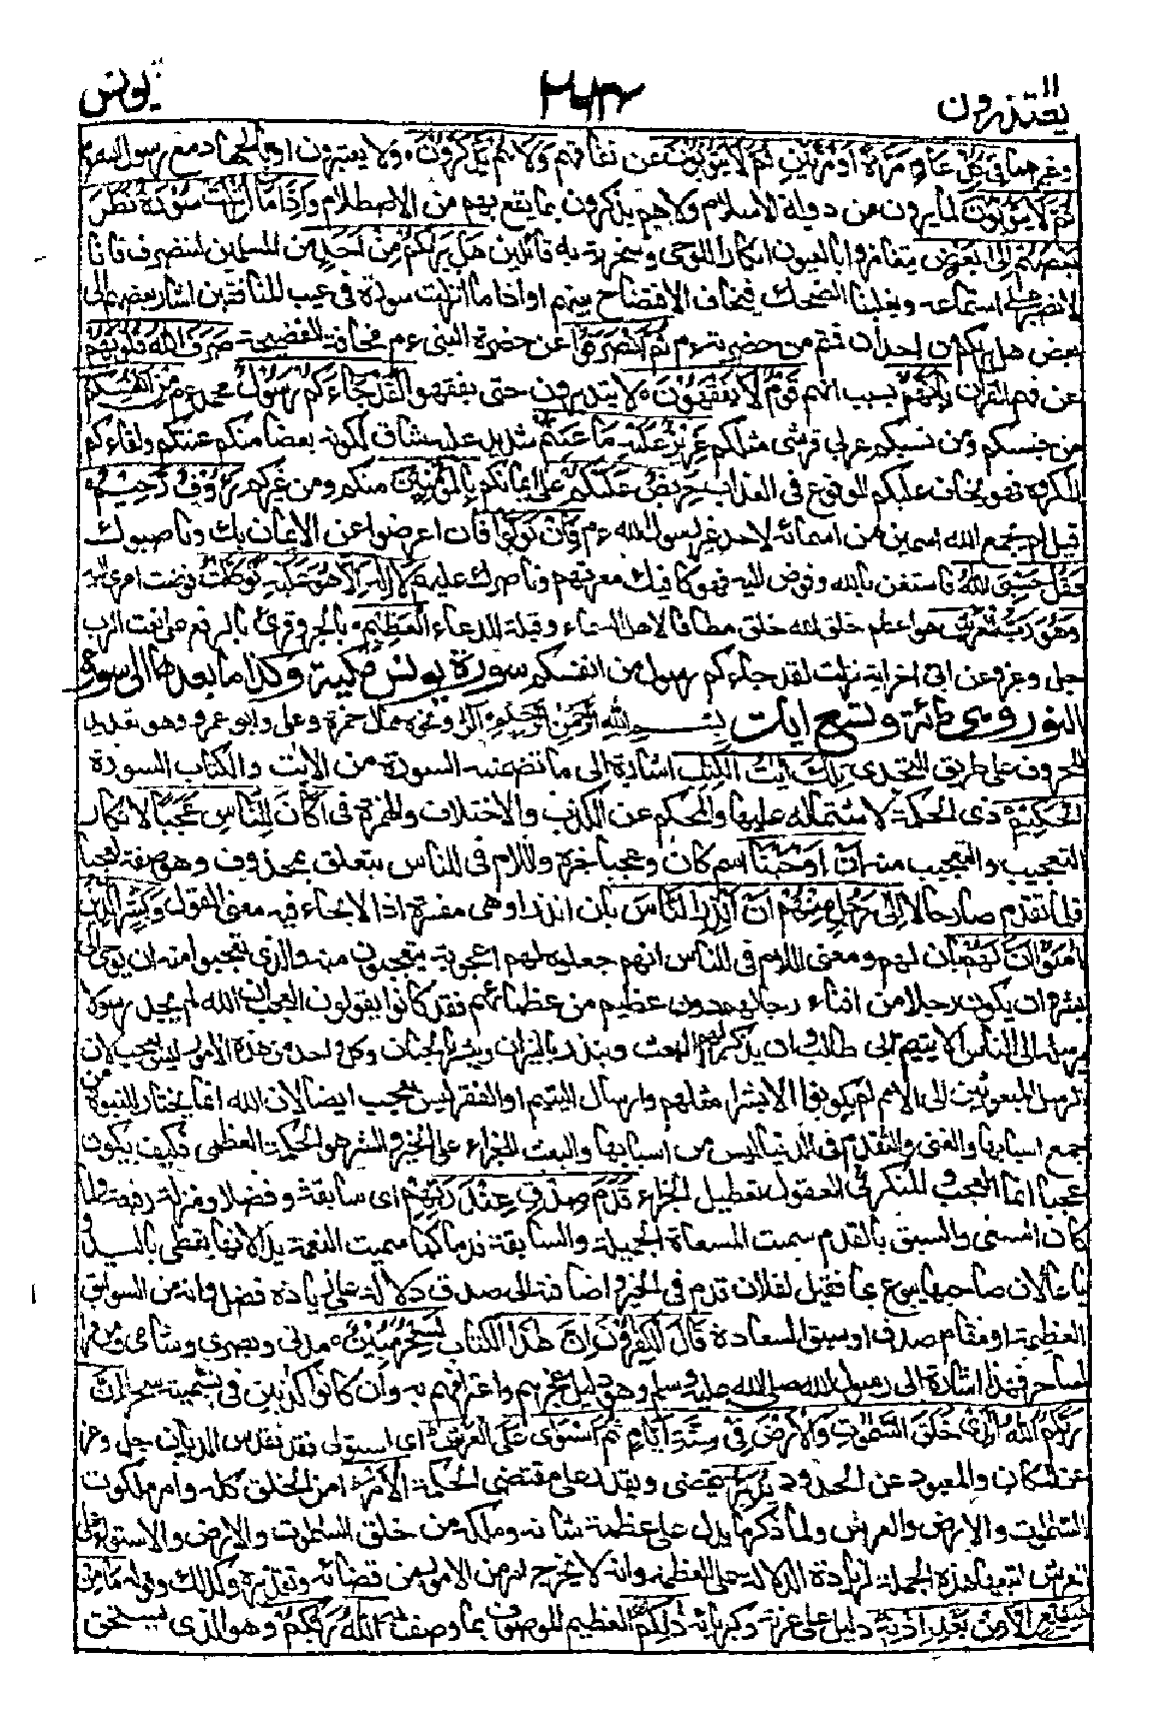 يعتذرون ٢٦٣ يونس
وغيرهما في كل عام مرة او مرتين ثم لا يتوبون عن نفاقهم ولا هم يذكرون ولا يعتبرون او بالجهاد مع رسول الله
ثم لا يتوبون لما يرون من دولة الاسلام ولا هم يذكرون بما يقع بهم من الاصطلام واذا ما انزلت سورة نظر
بعضهم الى بعض تغامزوا بالعيون انكارا للوحي وسخرية به قائلين هل يريكم من احد من المسلمين لننصرف فانا
لا نصبر على استماعه ويغلبنا الضحك فنخاف الافتضاح بينهم او اذا ما انزلت سورة في عيب المنافقين اشار بعضهم الى
بعض هل يريكم من احد ان قمتم من حضرته ءم ثم انصرفوا عن حضرة النبي ءم مخافة الفضيحة صرف الله قلوبهم
عن فهم القران بانهم بسبب انهم قوم لا يفقهون لا يتدبرون حتى يفقهوا لقد جاءكم رسول محمد ءم من انفسكم
من جنسكم ومن نسبكم عربي قرشي مثلكم عزيز عليه ما عنتم شديد عليه شاق لكونه بعضا منكم عنتكم ولقاءكم
المكروه فهو يخاف عليكم الوقوع في العذاب حريص عليكم على ايمانكم بالمؤمنين منكم ومن غيركم رءوف رحيم
قيل لم يجمع الله اسمين من اسمائه لاحد غير رسول الله ءم فان تولوا فان اعرضوا عن الايمان بك وناصبوك
فقل حسبي الله فاستعن بالله وفوض اليه فهو كافيك معرتهم وناصرك عليهم لا اله الا هو عليه توكلت فوضت امري اليه
وهو رب العرش هو اعظم خلق الله خلق مطافا لاهل السماء وقبلة للدعاء العظيم بالجر وقرئ بالرفع على نعت الرب
جل وعز وعن ابي اخر اية نزلت لقد جاءكم رسول من انفسكم سورة يونس مكية وكذا ما بعدها الى سورة
النور وهي مائة وتسع ايات بسم الله الرحمن الرحيم الر ونحوه ممال حمزة وعلي وابو عمرو وهو تعديد
للحروف على طريق التحدي تلك ايت الكتب اشارة الى ما تضمنته السورة من الايت والكتاب السورة
الحكيم ذي الحكمة لاشتماله عليها والمحكم عن الكذب والاختلاف والهمزة في اكان للناس عجبا لانكار
التعجب والتعجيب منه ان اوحينا اسم كان وعجبا خبره واللام في للناس يتعلق بمحذوف وهو صفة لعجبا
فلما تقدم صار حالا الى رجل منهم ان انذر الناس بان انذر او هي مفسرة اذ الايحاء فيه معنى القول وبشر الذين
امنوا ان لهم بان لهم ومعنى اللام في للناس انهم جعلوه لهم اعجوبة يتعجبون منه والذي تعجبوا منه ان يوحى الى
بشر وان يكون رجلا من افناء رجالهم دون عظيم من عظمائهم فقد كانوا يقولون العجب ان الله لم يجد رسولا
يرسله الى الناس الا يتيم ابي طالب وان يذكر لهم البعث وينذر بالنيران ويبشر بالجنان وكل واحد من هذه الامور ليس بعجب لان
الرسل المبعوثين الى الامم لم يكونوا الا بشرا مثلهم وارسال اليتيم او الفقير ليس بعجب ايضا لان الله انما يختار للنبوة من
جمع اسبابها والغنى والتقدم في الدنيا ليس من اسبابها والبعث للجزاء على الخير والشر هو الحكمة العظمى فكيف يكون
عجبا انما العجب والمنكر في العقول تعطيل الجزاء قدم صدق عند ربهم اي سابقة وفضلا ومنزلة رفيعة ولما
كان السعي والسبق بالقدم سميت المسعاة الجميلة والسابقة قدما كما سميت النعمة يدا لانها تعطى باليد و
باعا لان صاحبها يبوع بها فقيل لفلان قدم في الخير واضافته الى صدق دلالة على زيادة فضل وانه من السوابق
العظيمة او مقام صدق او سبق السعادة قال الكفرون ان هذا الكتاب لسحر مبين مدني وبصري وشامي ومن قرأ
لساحر فهذا اشارة الى رسول الله صلى الله عليه وسلم وهو دليل عجزهم واعترافهم به وان كانوا كاذبين في تسميته سحرا ان
ربكم الله الذي خلق السموت والارض في ستة ايام ثم استوى على العرش اي استولى فقد تقدس الديان جل وعز
عن المكان والمعبود عن الحدود يدبر يقضي ويقدر على مقتضى الحكمة الامر امر الخلق كله وامر ملكوت
السموت والارض والعرش ولما ذكر ما يدل على عظمة شانه وملكه من خلق السموت والارض والاستواء على
العرش اتبعها هذه الجملة لزيادة الدلالة على العظمة وانه لا يخرج امر من الامور من قضائه وتقديره وكذلك قوله ما من
شفيع الا من بعد اذنه دليل على عزته وكبريائه ذلكم العظيم الموصوف بما وصف به الله ربكم وهو الذي يستحق